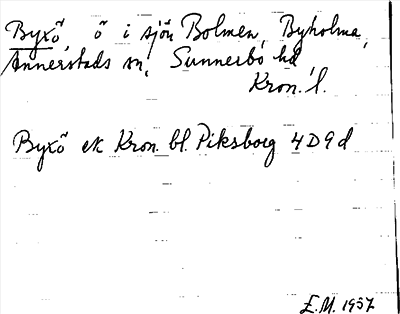 Byxö, ö i sjön Bolmen, Byholma,
Annerstads sn, Sunnerbo hd,
Kron. l.
Byxö ek Kron. bl. Piksborg 4D9d
E.M. 1957